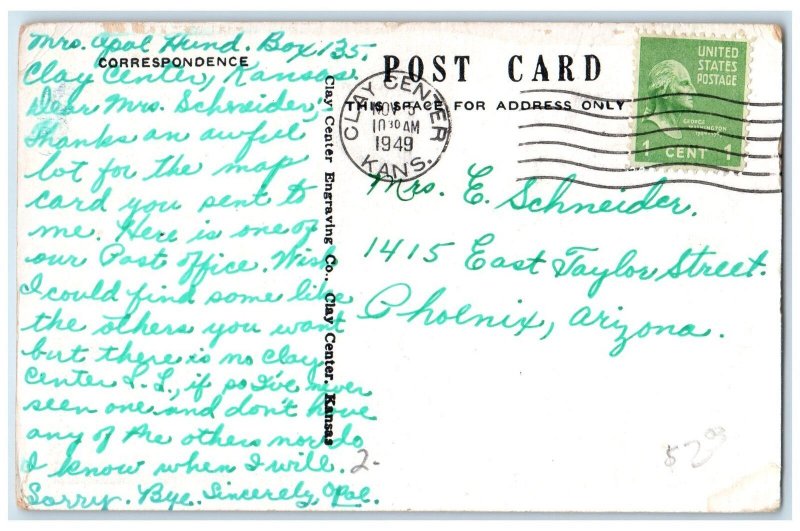 Mrs. Opal Hund. Box 135.
CORRESPONDENCE
Clay Center, Kansas.
Dear Mrs. Schneider,
Thanks an awful
lot for the map
card you sent to
me. Here is one of
our Post office. Wish
I could find some like
the others you want
but there is no Clay
Center L. L., if so I've never
seen one and don't have
any of the others nor do
I know when I will.
Sorry. Bye. Sincerely, Opal.
2-
Clay Center Engraving Co., Clay Center, Kansas
POST CARD
THIS SPACE FOR ADDRESS ONLY
CLAY CENTER
NOV 5
10 30 AM
1949
KANS.
UNITED
STATES
POSTAGE
GEORGE
WASHINGTON
1 CENT 1
Mrs. E. Schneider.
1415 East Taylor Street.
Phoenix, Arizona.
$2.00